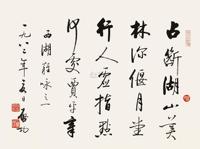 占断湖山美
林深偃月堂
行人虚指点
何处贾平章
西湖杂咏之一
一九八二年夏日 启功